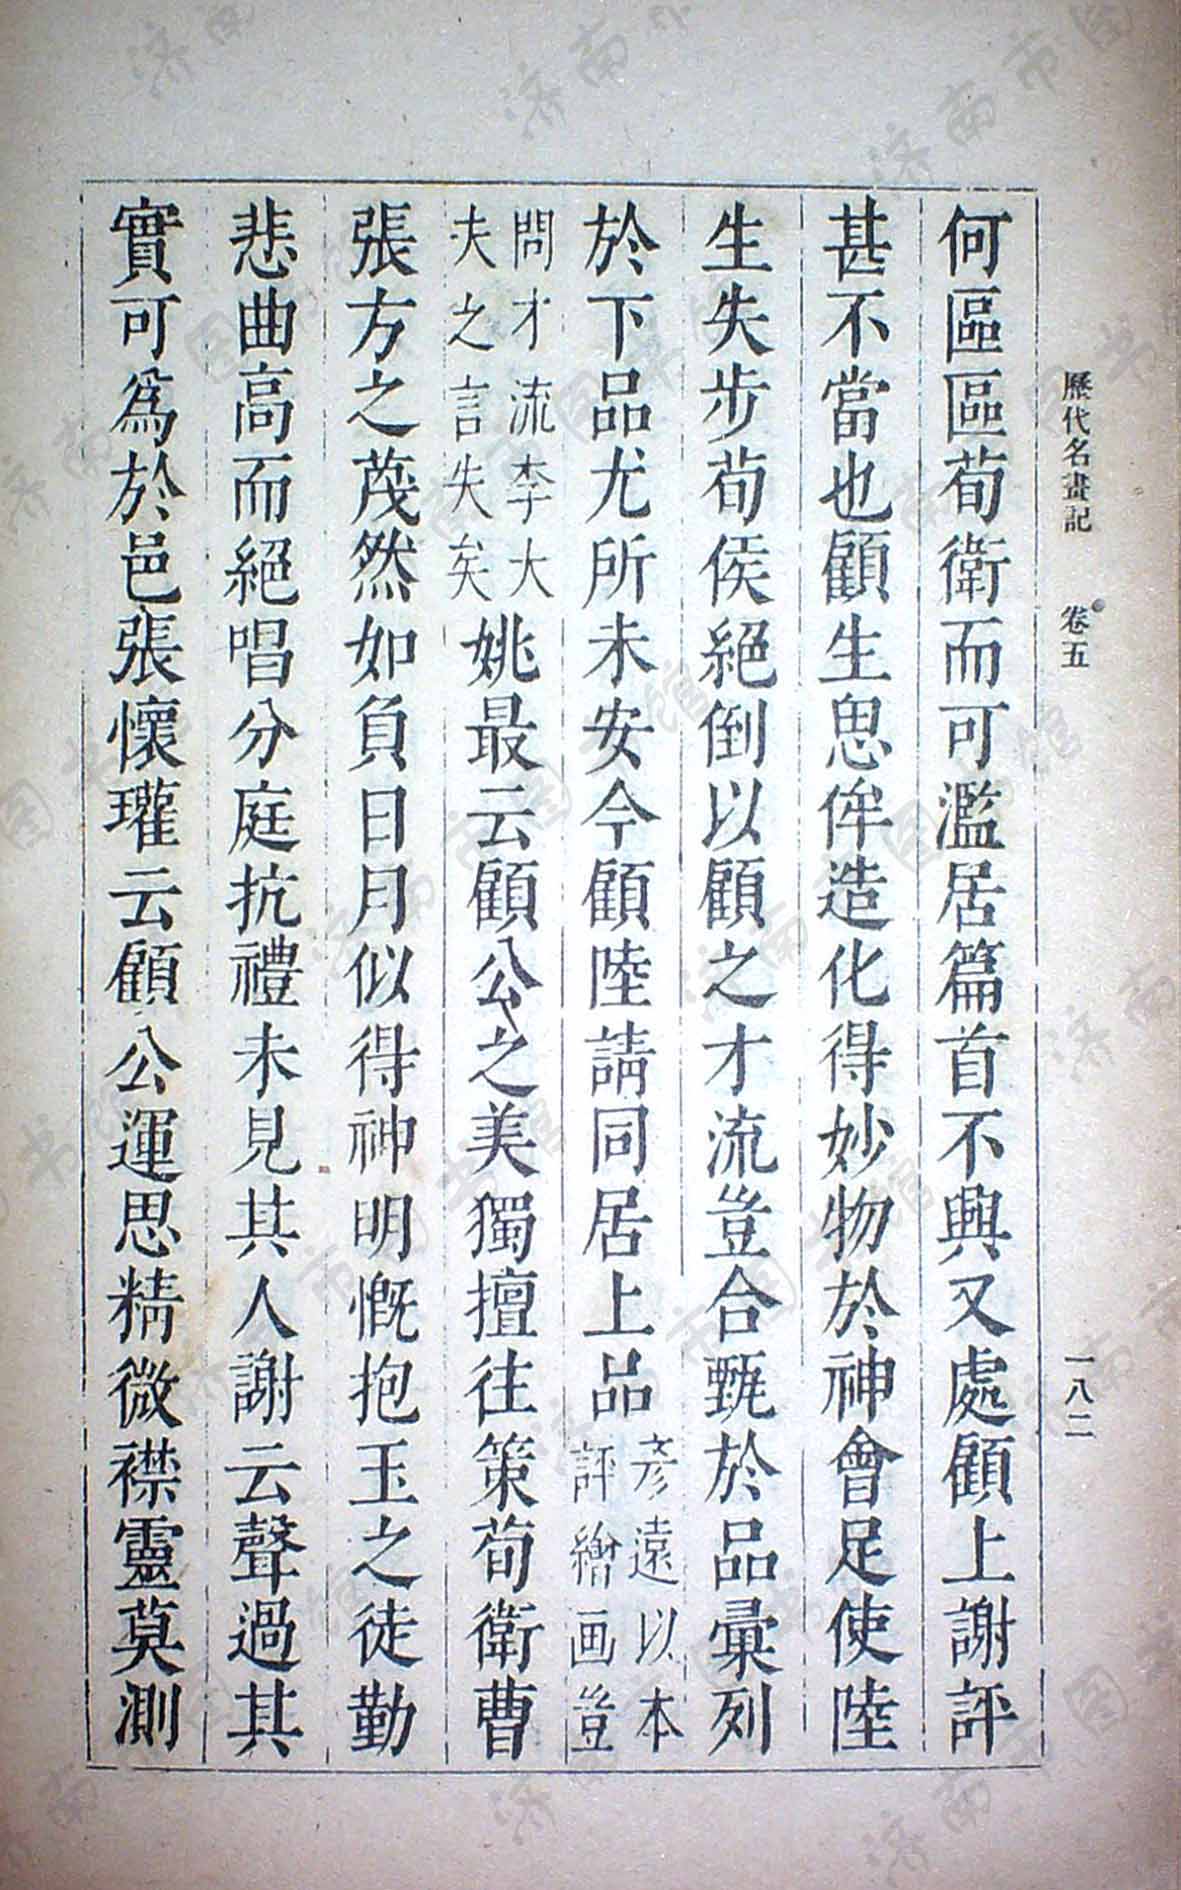 歷代名畫記　卷五　一八二
何區區荀衛而可濫居篇首不興又處顧上謝評
甚不當也顧生思侔造化得妙物於神會足使陸
生失步荀侯絕倒以顧之才流豈合甄於品彙列
於下品尤所未安今顧陸請同居上品彥遠以本
評繪画豈
問才流李大
夫之言失矣姚最云顧公之美獨擅往策荀衛曹
張方之茂然如負日月似得神明慨抱玉之徒勤
悲曲高而絕唱分庭抗禮未見其人謝云聲過其
實可為於邑張懷瓘云顧公運思精微襟靈莫測
济南市图书馆